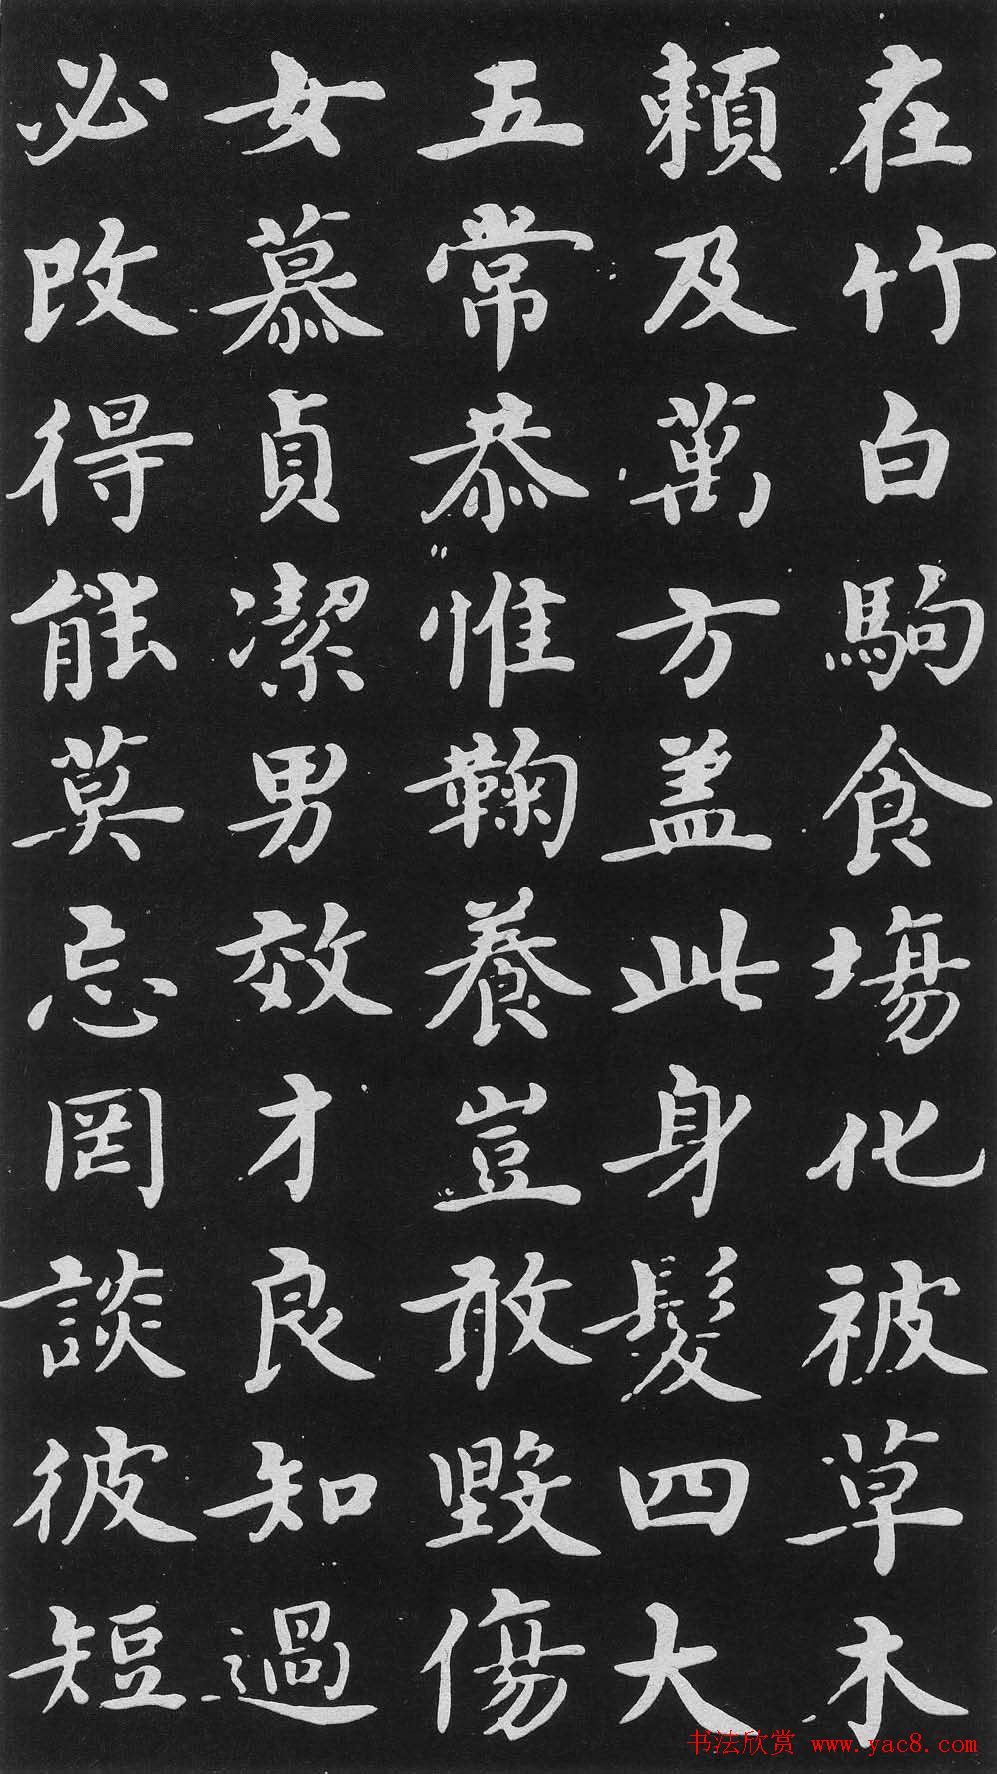 在竹白駒食場化被草木
賴及萬方盖此身髮四大
五常恭惟鞠養豈敢毀傷
女慕貞潔男效才良知過
必改得能莫忘罔談彼短
书法欣赏 www.yac8.com